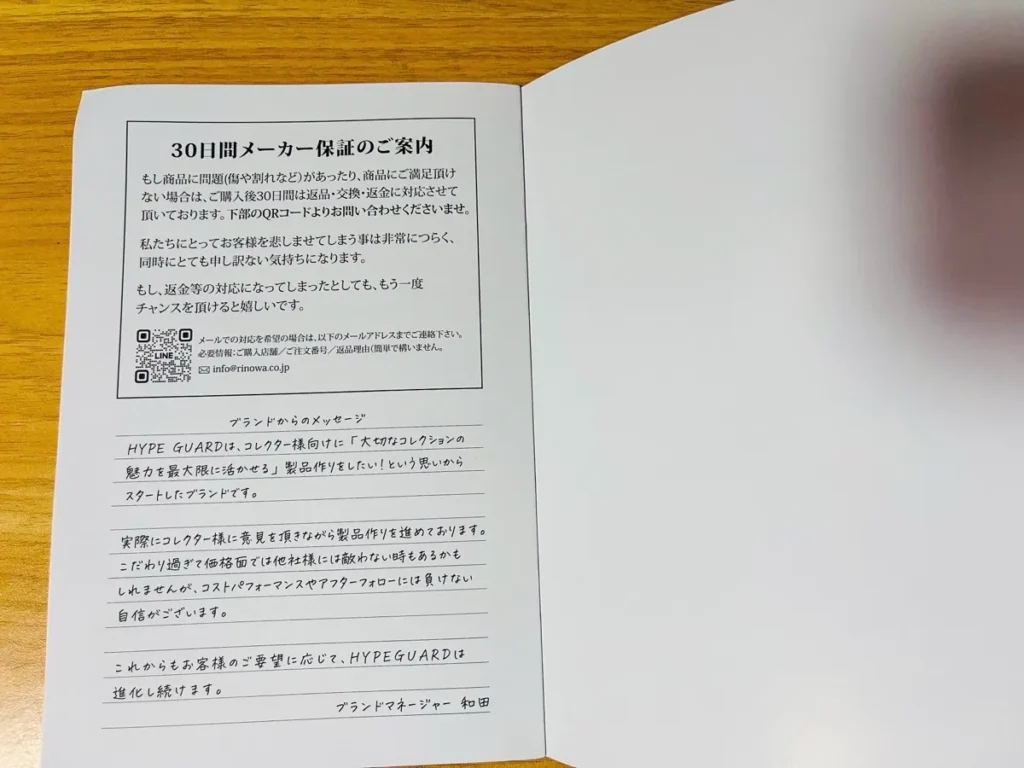 30日間メーカー保証のご案内
もし商品に問題(傷や割れなど)があったり、商品にご満足頂け
ない場合は、ご購入後30日間は返品・交換・返金に対応させて
頂いております。下部のQRコードよりお問い合わせくださいませ。
私たちにとってお客様を悲しませてしまう事は非常につらく、
同時にとても申し訳ない気持ちになります。
もし、返金等の対応になってしまったとしても、もう一度
チャンスを頂けると嬉しいです。
LINE
メールでの対応を希望の場合は、以下のメールアドレスまでご連絡下さい。
必要情報:ご購入店舗/ご注文番号/返品理由(簡単で構いません。
info@rinowa.co.jp
ブランドからのメッセージ
HYPE GUARDは、コレクター様向けに「大切なコレクションの
魅力を最大限に活かせる」製品作りをしたい!という思いから
スタートしたブランドです。
実際にコレクター様に意見を頂きながら製品作りを進めております。
こだわり過ぎて価格面では他社様には敵わない時もあるかも
しれませんが、コストパフォーマンスやアフターフォローには負けない
自信がございます。
これからもお客様のご要望に応じて、HYPEGUARDは
進化し続けます。
ブランドマネージャー 和田